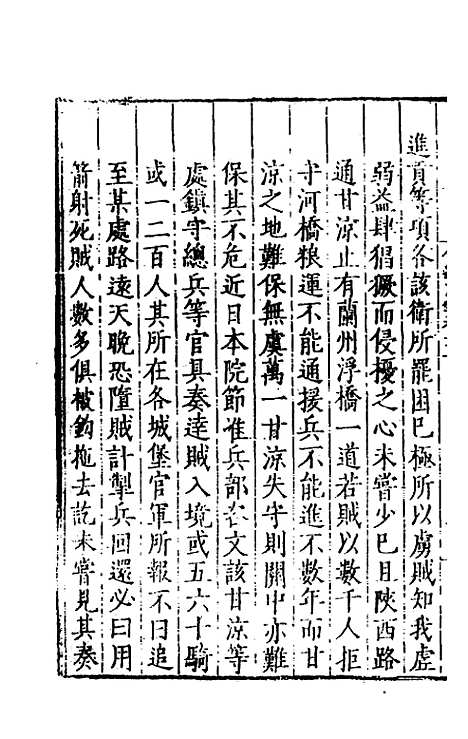 進貢等項各該衛所罷困已極所以虜賊知我虛
弱益肆猖獗而侵擾之心未嘗少已且陝西路
通甘涼止有蘭州浮橋一道若賊以數千人拒
守河橋粮運不能通援兵不能進不數年而甘
涼之地難保無虞萬一甘涼失守則關中亦難
保其不危近日本院節准兵部咨文該甘涼等
處鎮守總兵等官具奏達賊入境或五六十騎
或一二百人其所在各城堡官軍所報不曰追
至某處路遠天晚恐墮賊計掣兵回還必曰用
箭射死賊人數多俱被鈎拖去訖未嘗見其奏